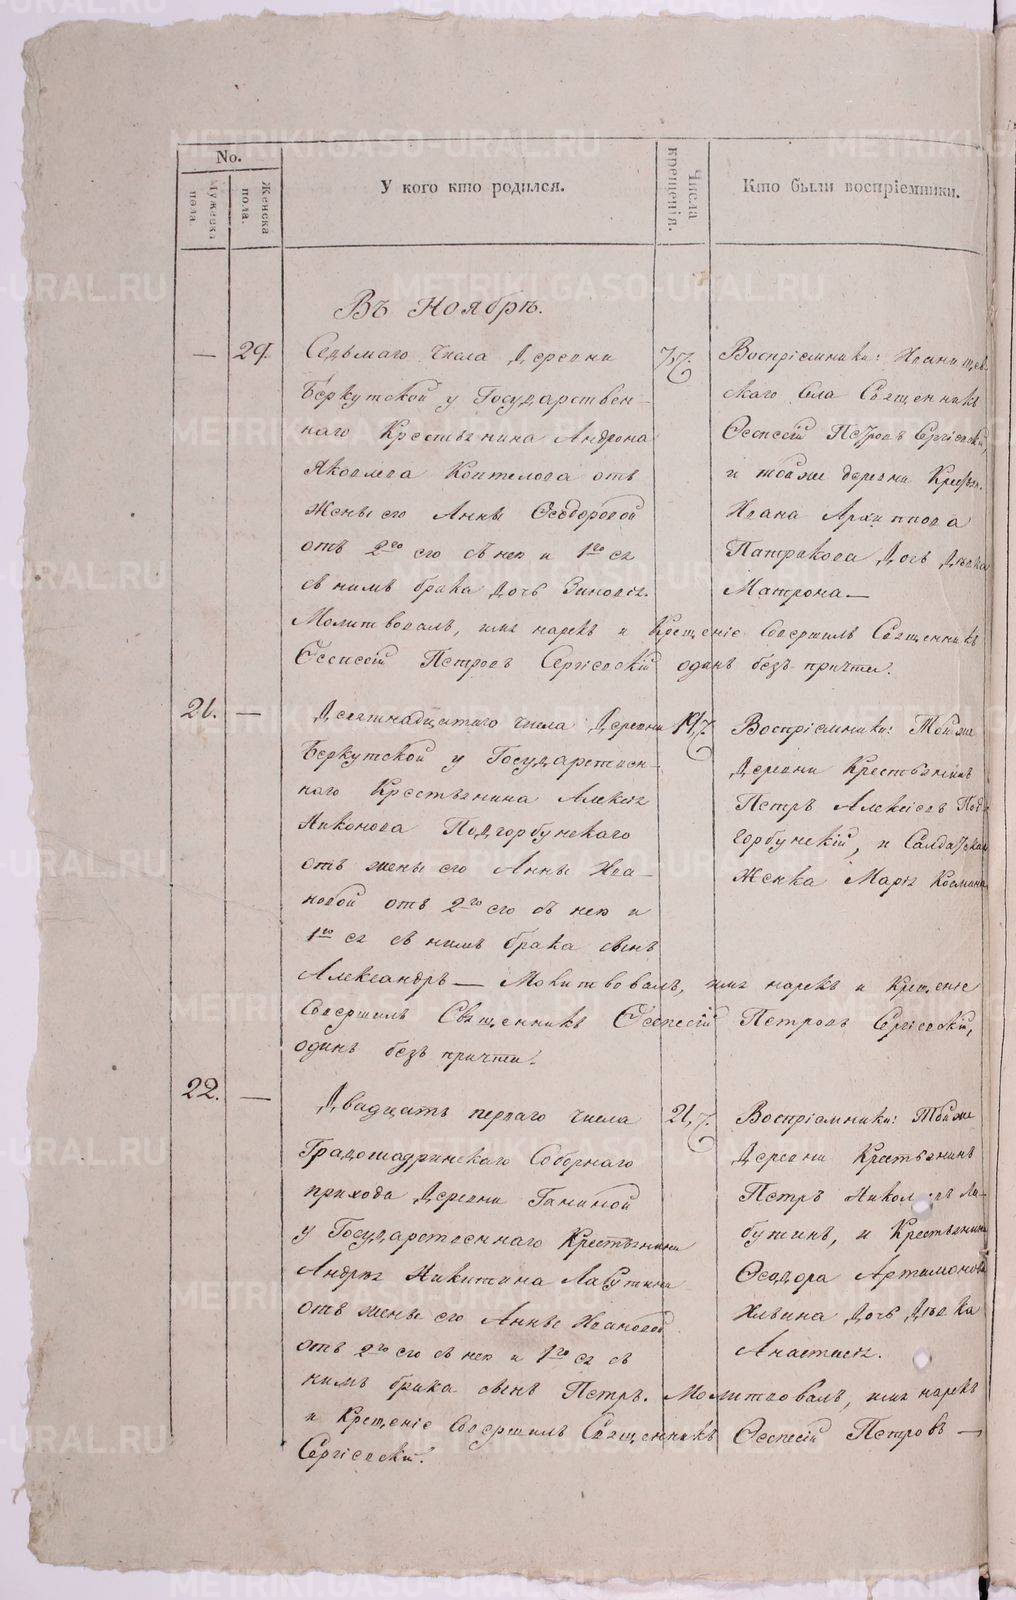 METRIKI.GASO-URAL.RU
No.
Мужеска пола
Женска пола.
У кого кто родился.
Числа крещенія.
Кто были воспріемники.
Въ Ноябрѣ.
— 29. Седьмаго числа Деревни
Беркутской у Государствен-
наго Крестьянина Андрона
Яковлева Коптелова отъ
жены его Анны Ѳеодоровой
отъ 2го его съ нею и 1го ея
съ нимъ брака дочь Зиновія.
7.
Воспріемники:
скаго Села Священникъ
Петровъ Сергіевскій,
и тойже деревни Крестьян.
Ивана Архиппова
Патракова дочь дѣвка
Матрона—
Молитвовалъ, имя нарекъ и Крещеніе Совершилъ Священникъ
Петровъ Сергіевскій одинъ безъ причта.
21. — Девятнадцатаго числа Деревни
Беркутской у Государствен-
наго Крестьянина Алексея
Никонова Подгорбунскаго
отъ жены его Анны Ива-
новой отъ 2го его съ нею и
1го ея съ нимъ брака сынъ
19.
Воспріемники: Тойже
Деревни Крестьянинъ
Петръ Алексіевъ Под-
горбунскій, и Салдатская
Женка Марія Космина
Александръ — Молитвовалъ, имя нарекъ и Крещеніе
Совершилъ Священникъ Петровъ Сергіевскій,
одинъ безъ причта.
22. — Двадцать перваго числа
Градошадринскаго Соборнаго
прихода Деревни Ганиной
у Государственнаго Крестьянина
Андрея Никитина Лабутина
отъ жены его Анны Ивановой
отъ 2го его съ нею и 1го ея съ
21.
Воспріемники: Тойже
Деревни Крестьянинъ
Петръ Николаевъ Ла-
бутинъ, и Крестьянина
Ѳеодора Артамонова
Ильина дочь дѣвка
Анастасія.
нимъ брака сынъ Петръ. Молитвовалъ, имя нарекъ
и Крещеніе Совершилъ Священникъ Петровъ —
Сергіевскій.